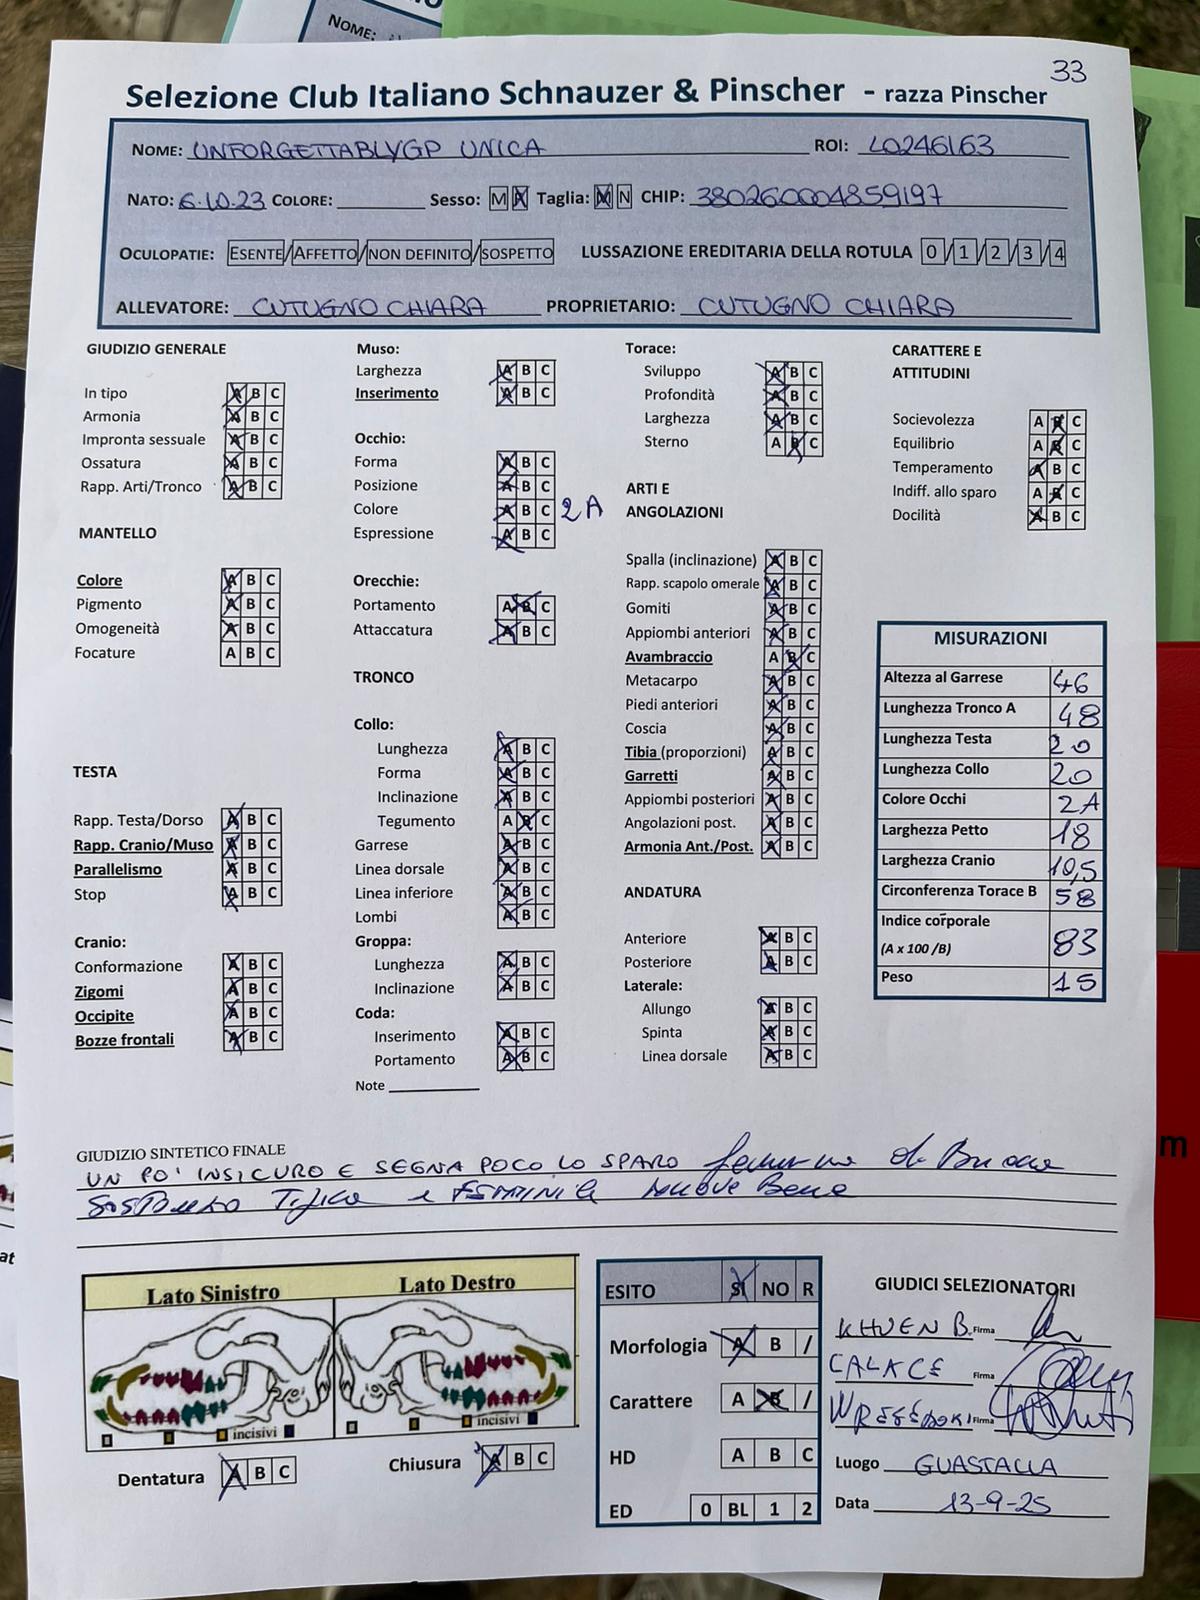 33
Selezione Club Italiano Schnauzer & Pinscher - razza Pinscher
NOME: UNFORGETTABLYGP UNICA ROI: LO246163
NATO: 6.10.23 COLORE: Sesso: M Taglia: M N CHIP: 380260004859197
OCULOPATIE: ESENTE/AFFETTO/NON DEFINITO/SOSPETTO LUSSAZIONE EREDITARIA DELLA ROTULA 0/1/2/3/4
ALLEVATORE: CUTUGNO CHIARA PROPRIETARIO: CUTUGNO CHIARA
GIUDIZIO GENERALE
In tipo A B C
Armonia A B C
Impronta sessuale A B C
Ossatura A B C
Rapp. Arti/Tronco A B C
MANTELLO
Colore A B C
Pigmento A B C
Omogeneità A B C
Focature A B C
TESTA
Rapp. Testa/Dorso A B C
Rapp. Cranio/Muso A B C
Parallelismo A B C
Stop A B C
Cranio:
Conformazione A B C
Zigomi A B C
Occipite A B C
Bozze frontali A B C
Muso:
Larghezza A B C
Inserimento A B C
Occhio:
Forma A B C
Posizione A B C
Colore A B C 2A
Espressione A B C
Orecchie:
Portamento A B C
Attaccatura A B C
TRONCO
Collo:
Lunghezza A B C
Forma A B C
Inclinazione A B C
Tegumento A B C
Garrese A B C
Linea dorsale A B C
Linea inferiore A B C
Lombi A B C
Groppa:
Lunghezza A B C
Inclinazione A B C
Coda:
Inserimento A B C
Portamento A B C
Note
Torace:
Sviluppo A B C
Profondità A B C
Larghezza A B C
Sterno A B C
ARTI E
ANGOLAZIONI
Spalla (inclinazione) A B C
Rapp. scapolo omerale A B C
Gomiti A B C
Appiombi anteriori A B C
Avambraccio A B C
Metacarpo A B C
Piedi anteriori A B C
Coscia A B C
Tibia (proporzioni) A B C
Garretti A B C
Appiombi posteriori A B C
Angolazioni post. A B C
Armonia Ant./Post. A B C
ANDATURA
Anteriore A B C
Posteriore A B C
Laterale:
Allungo A B C
Spinta A B C
Linea dorsale A B C
CARATTERE E
ATTITUDINI
Socievolezza A B C
Equilibrio A B C
Temperamento A B C
Indiff. allo sparo A B C
Docilità A B C
MISURAZIONI
Altezza al Garrese 46
Lunghezza Tronco A 48
Lunghezza Testa 20
Lunghezza Collo 20
Colore Occhi 2A
Larghezza Petto 18
Larghezza Cranio 10,5
Circonferenza Torace B 58
Indice corporale
(A x 100 /B) 83
Peso 15
GIUDIZIO SINTETICO FINALE
UN PO' INSICURO E SEGNA POCO LO SPARO
Tipica e FEMMINILE Muove Bene
Lato Sinistro Lato Destro
incisivi incisivi
Dentatura A B C Chiusura A B C
ESITO SI NO R
Morfologia A B /
Carattere A B /
HD A B C
ED 0 BL 1 2
GIUDICI SELEZIONATORI
KHUEN B. Firma
CALACE Firma
Firma
Luogo GUASTALLA
Data 13-9-25
NOME: